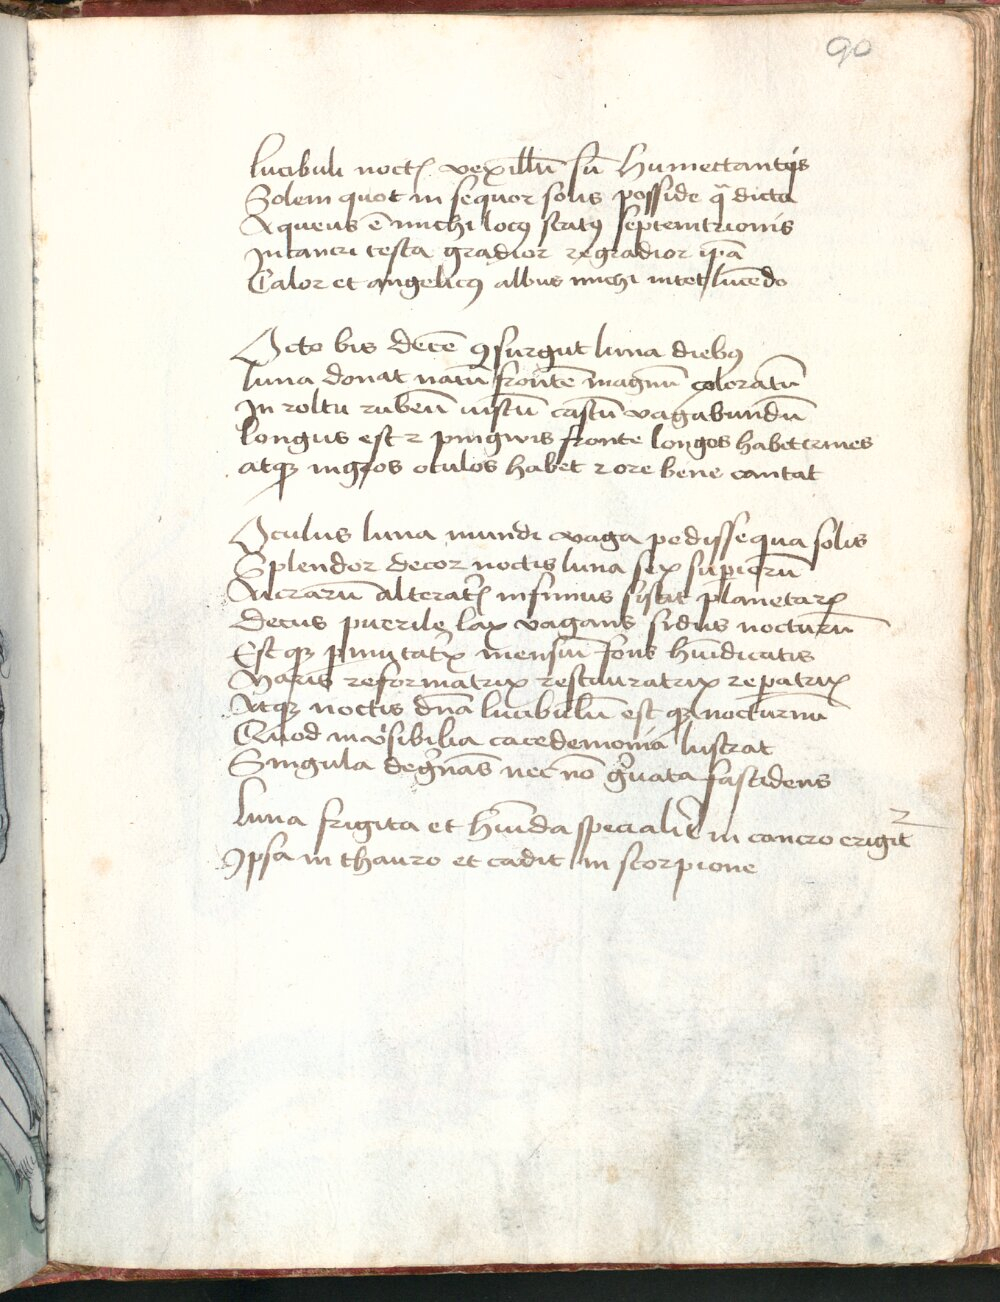 90
lucibuli noct͛ vexillū sū humectantis
Solem quot in sequor solis posside q̄ dicta
Aqueus ē michi locꝰ statꝰ septemtrionis
In cancri testa gradior regradior ip̄a
Calor et angelicꝰ albus michi intet lucēdo
Octo bis decē ꝯsurgut luna diebꝰ
luna donat natū frontē magnū coloratū
In voltu rubeū iustū castū vagabundū
longus est ⁊ pingwis fronte longos habet crines
atqꝫ nigros oculos habet ⁊ ore bene cantat
Oculus luna mundi vaga pedissequa solis
Splendor decor noctis luna sex supiorū
Alterat͛ infimus sistit planetaꝝ
decus puerile lax vagans sidus nocturnū
Est qꝫ ꝑmutatrix mensiū fons hūiditatis
Maris reformatrix restauratrix repatrix
Atqꝫ noctis dn̄a lucibulū est qꝫ nocturnū
Quod inuisibilia cacedemonia lustrat
Singula nec nō fastidens
luna frigita et hūida specialit in cancro erigit
Ipsa in thauro et cadit in scorpione